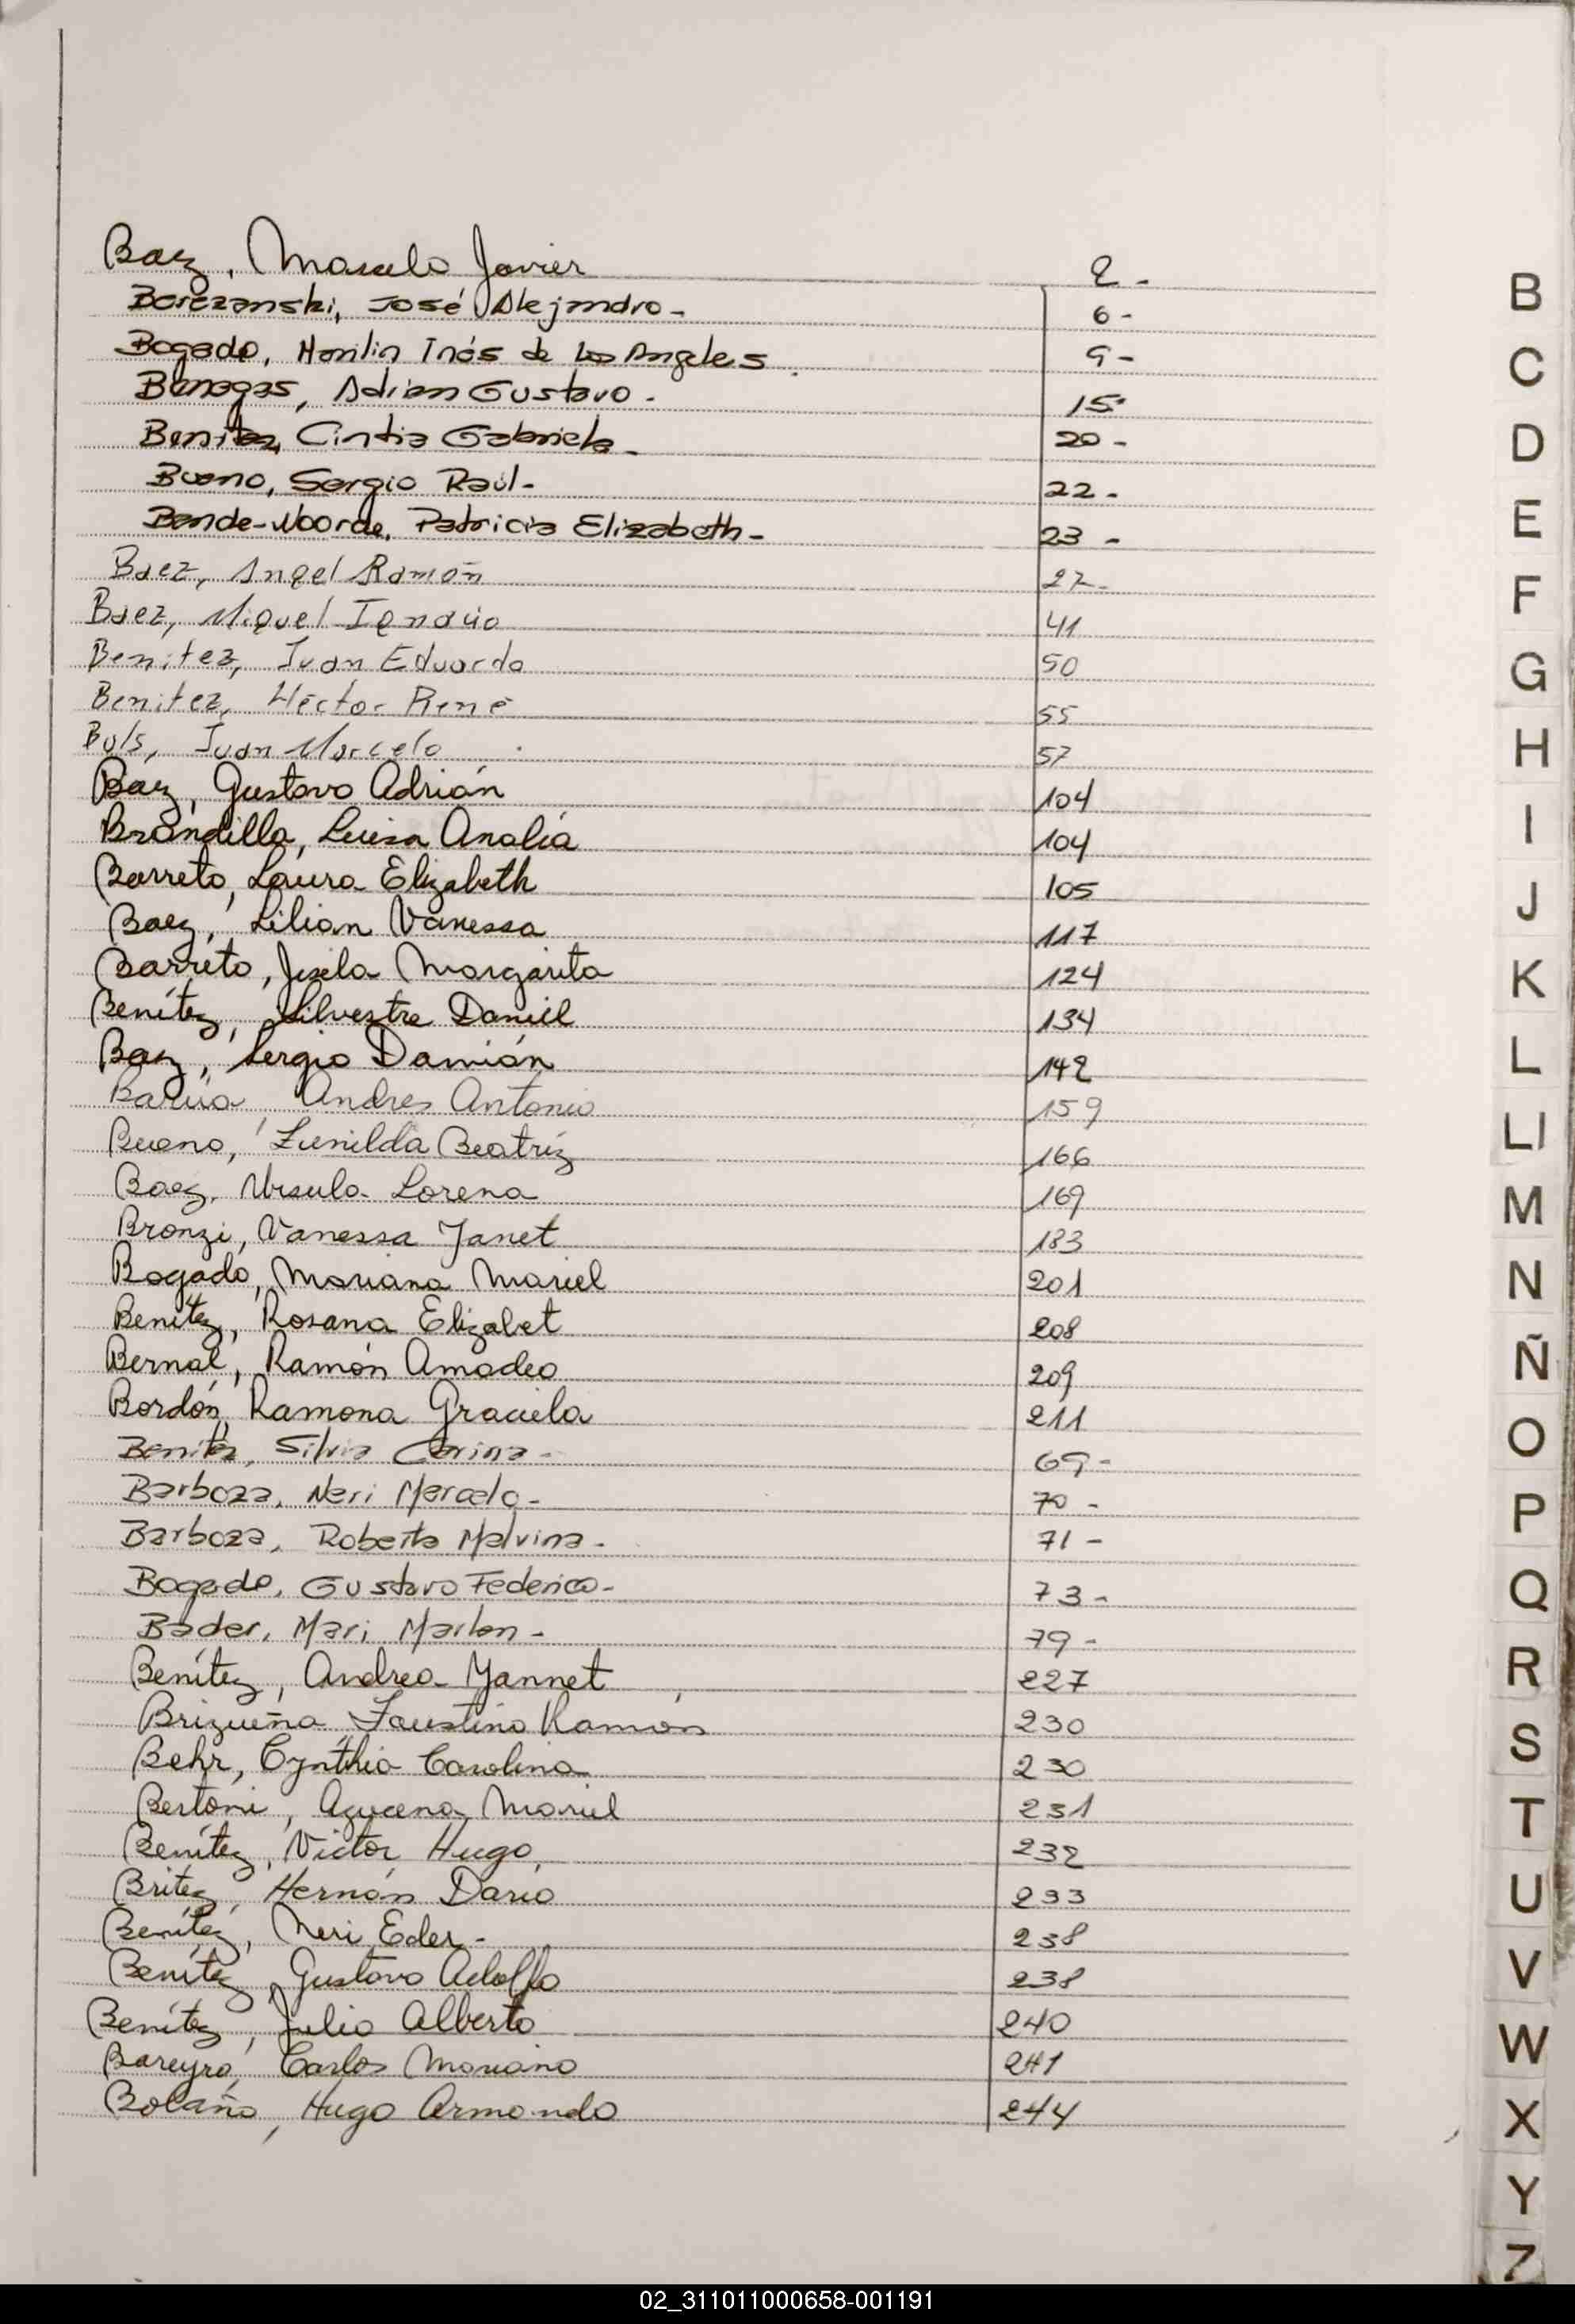 Baez, Marcelo Javier 2-
Borczanski, José Alejandro- 6-
Bogado, Inés de Los Angeles 9-
Benegas, Adrian Gustavo- 15-
Benitez, Cintia Gabriela- 20-
Bueno, Sergio Raúl- 22-
Bande-Woorde, Patricia Elizabeth- 23-
Baez, Angel Ramón 27-
Baez, Miguel Ignacio 41
Benitez, Juan Eduardo 50
Benitez, Héctor René 55
Buls, Juan Marcelo 57
Baez, Gustavo Adrián 104
Brondilla, Luisa Analía 104
Barreto, Laura Elizabeth 105
Baez, Lilian Vanessa 117
Barreto, Jisela Margarita 124
Benítez, Silvestre Daniel 134
Baez, Sergio Damián 142
Barúa Andres Antonio 159
Bueno, Zunilda Beatríz 166
Baez, Ursula Lorena 169
Bronzi, Vanessa Janet 183
Bogado, Mariana Mariel 201
Benítez, Rosana Elizabet 208
Bernal, Ramón Amadeo 209
Bordón, Ramona Graciela 211
Benitez, Silvia Carina- 69-
Barboza, Neri Marcelo- 70-
Barboza, Roberto Malvina- 71-
Bogado, Gustavo Federico- 73-
Bader, Mari Marlen- 79-
Benítez, Andrea Yannet 227
Brizueña, Faustino Ramón 230
Behr, Cynthia Carolina 230
Bertoni, Azucena Mariel 231
Benítez, Victor Hugo 232
Britez, Hernán Dario 233
Benítez, Neri Eder- 238
Benítez, Gustavo Adolfo 238
Benítez, Julio Alberto 240
Bareyro, Carlos Mariano 241
Bolaño, Hugo Armando 244
B
C
D
E
F
G
H
I
J
K
L
Ll
M
N
Ñ
O
P
Q
R
S
T
U
V
W
X
Y
Z
02_311011000658-001191